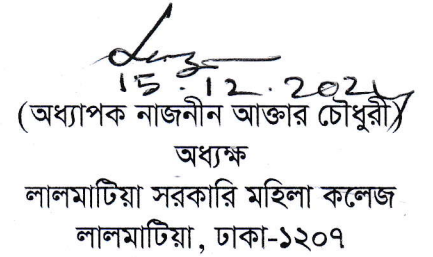 15.12.2024
(অধ্যাপক নাজনীন আক্তার চৌধুরী)
অধ্যক্ষ
লালমাটিয়া সরকারি মহিলা কলেজ
লালমাটিয়া, ঢাকা-১২০৭